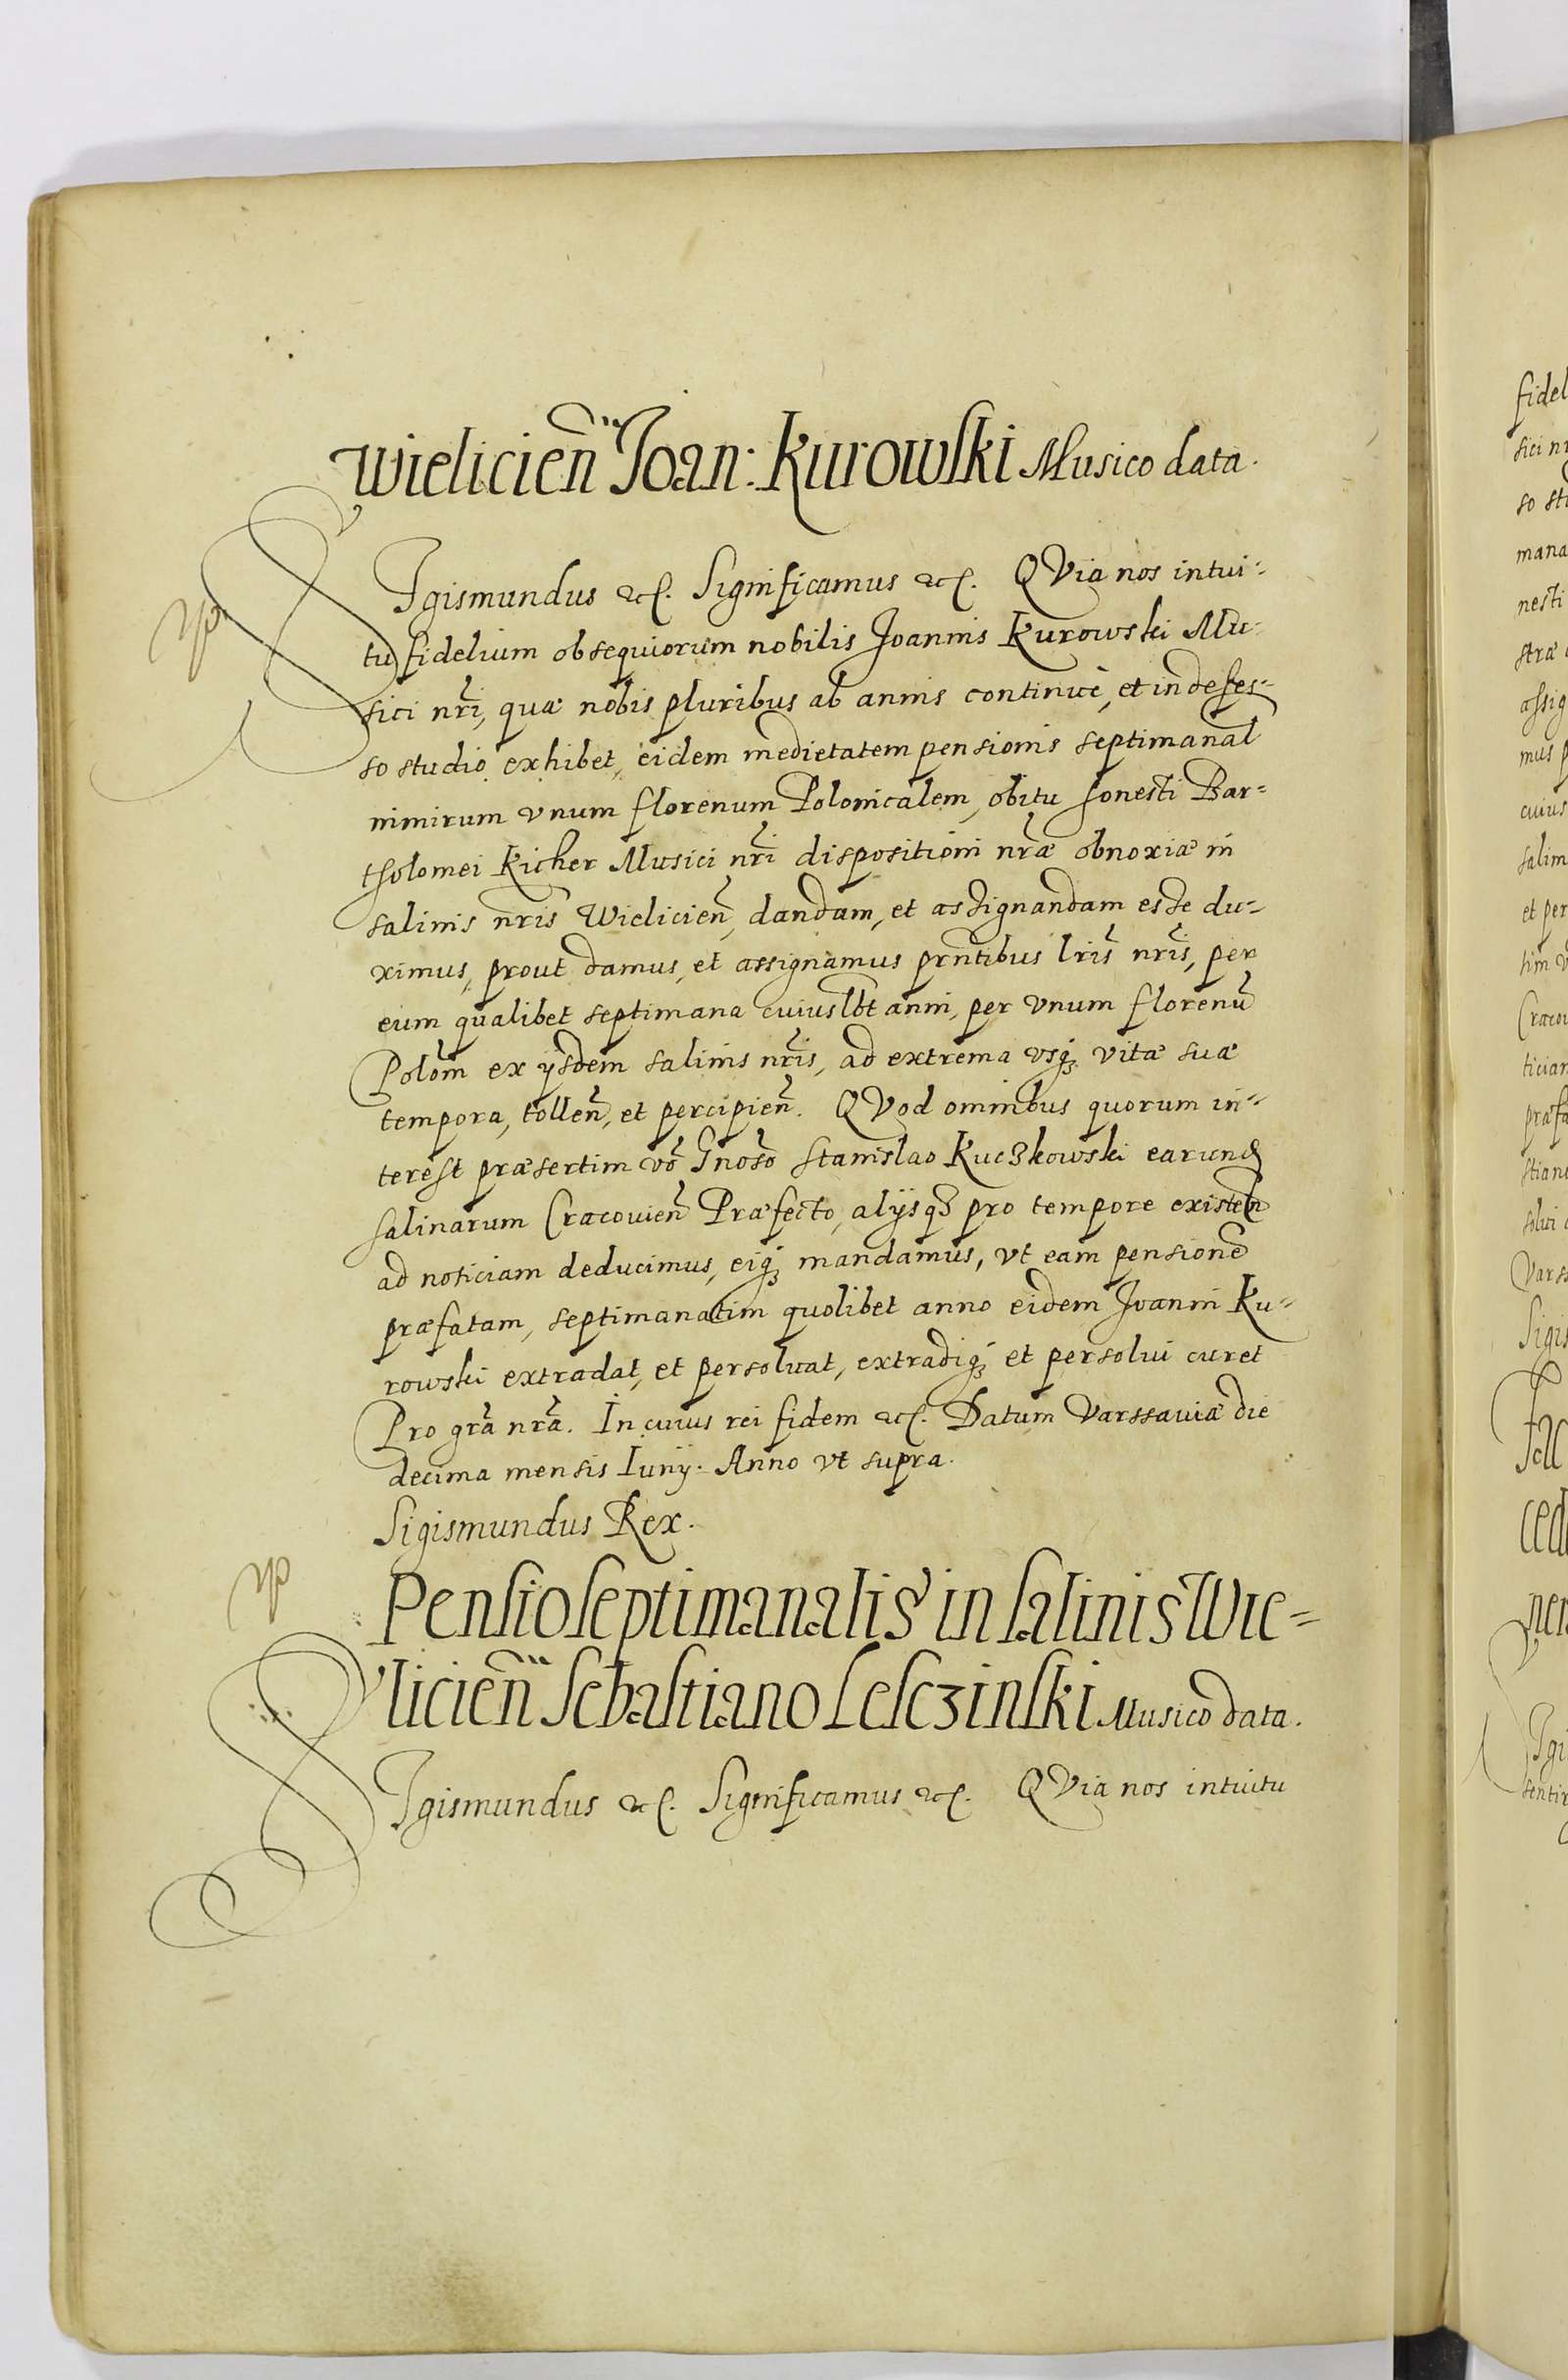 Wielicień Joan: Kurowski Musico data.
SIgismundus etc. Significamus etc. QVia nos intui-
tu fidelium obsequiorum nobilis Joannis Kurowski Mu-
sici nr̃i, quæ nobis pluribus ab annis continuè, et indefes-
so studio exhibet, eidem medietatem pensionis septimanal
nimirum vnum florenum Polonicalem, obitu honesti Bar=
tholomei Kicher Musici nr̃i dispositioni nr̃æ obnoxiæ in
salinis nr̃is Wielicien̄, dandam, et assignandam esse du-
ximus, prout damus, et assignamus prñtibus lr̃is nr̃is, per
eum qualibet septimana cuiuslb̃t anni, per vnum florenū
Polom̃ ex ijsdem salinis nr̃is, ad extrema vsq3 vitæ suæ
tempora, tolleñ, et percipieñ. QVod omnibus quorum in-
terest præsertim vō Gnōsō Stanislao Kuczkowski earund
salinarum Cracouień Præfecto, alijsq3 pro tempore existeñ
ad noticiam deducimus, eiq3 mandamus, vt eam pensionē
præfatam, septimanatim quolibet anno eidem Joanni Ku-
rowski extradat, et persoluat, extradiq3 et persolui curet
Pro gr̃a nr̃a. In cuius rei fidem etc. Datum Varssauiæ die
decima mensis Iunij. Anno vt supra.
Sigismundus Rex.
Pensio septimanalis in salinis Wie=
licień Sebastiano Lesczinski Musico data.
SIgismundus etc. Significamus etc. QVia nos intuitu